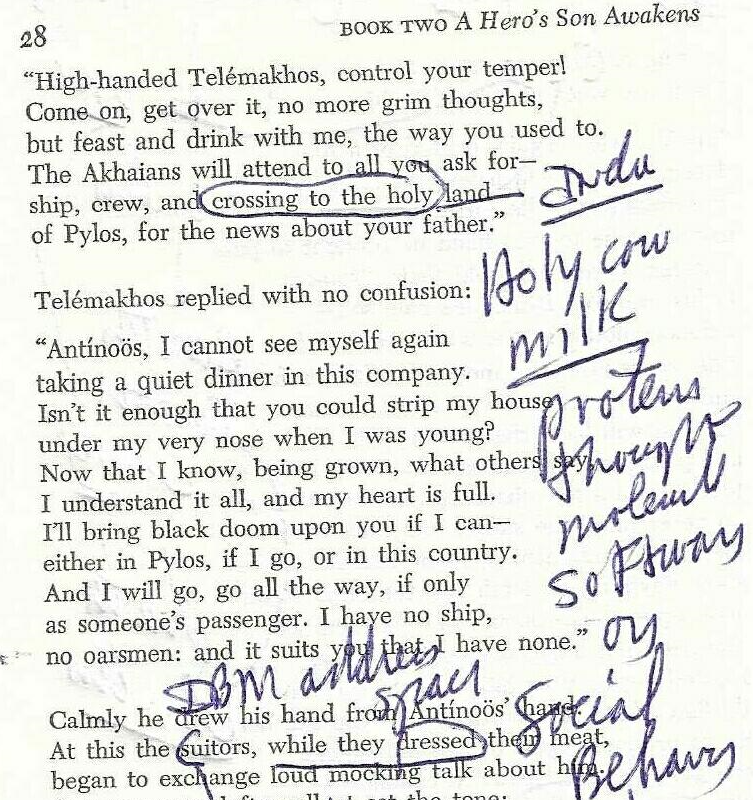 28
BOOK TWO A Hero's Son Awakens
"High-handed Telémakhos, control your temper!
Come on, get over it, no more grim thoughts,
but feast and drink with me, the way you used to.
The Akhaians will attend to all you ask for—
ship, crew, and crossing to the holy land
of Pylos, for the news about your father."
Holy cow
Telémakhos replied with no confusion:
milk
"Antínoös, I cannot see myself again
taking a quiet dinner in this company.
Isn't it enough that you could strip my house
under my very nose when I was young?
Now that I know, being grown, what others say,
I understand it all, and my heart is full.
I'll bring black doom upon you if I can—
either in Pylos, if I go, or in this country.
And I will go, go all the way, if only
as someone's passenger. I have no ship,
no oarsmen: and it suits you that I have none."
address
Social
Calmly he drew his hand from Antínoös' hand.
At this the suitors, while they dressed their meat,
began to exchange loud mocking talk about him.